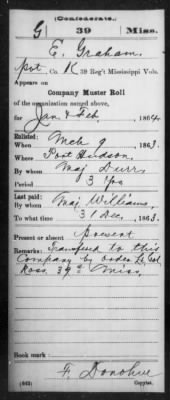 (Confederate.)
G 39 Miss.
E. Graham.
Pvt, Co. K 39 Reg't Mississippi Vols.
Appears on
Company Muster Roll
of the organization named above,
for Jan & Feb, 1864.
Enlisted:
When Mch 9, 1863.
Where Port Hudson.
By whom Maj Durr.
Period 3 Yrs
Last paid:
By whom Maj Williams,
To what time 31 Dec, 1863.
Present or absent Present
Remarks: Transferred to this
Company by order Lt Col
Ross 39th Miss.
Book mark:
F. Donohue
(642) Copyist.